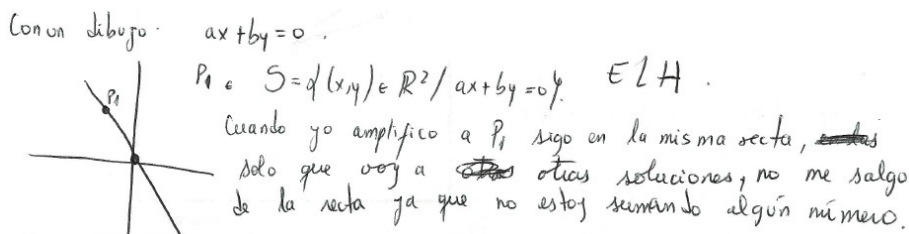 Con un dibujo. ax + by = 0.
P1 ∈ S = {(x,y) ∈ R² / ax + by = 0}. ELH.
P1
Cuando yo amplifico a P1 sigo en la misma recta,
solo que voy a otras soluciones, no me salgo
de la recta ya que no estoy sumando algún número.